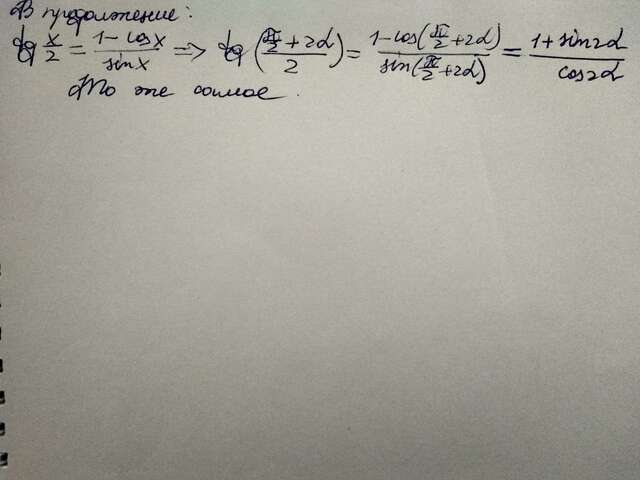 В продолжение:
tg x/2 = (1-cosx)/sinx => tg ((π/2+2α)/2) = (1-cos(π/2+2α))/(sin(π/2+2α)) = (1+sin2α)/(cos2α)
То же самое.